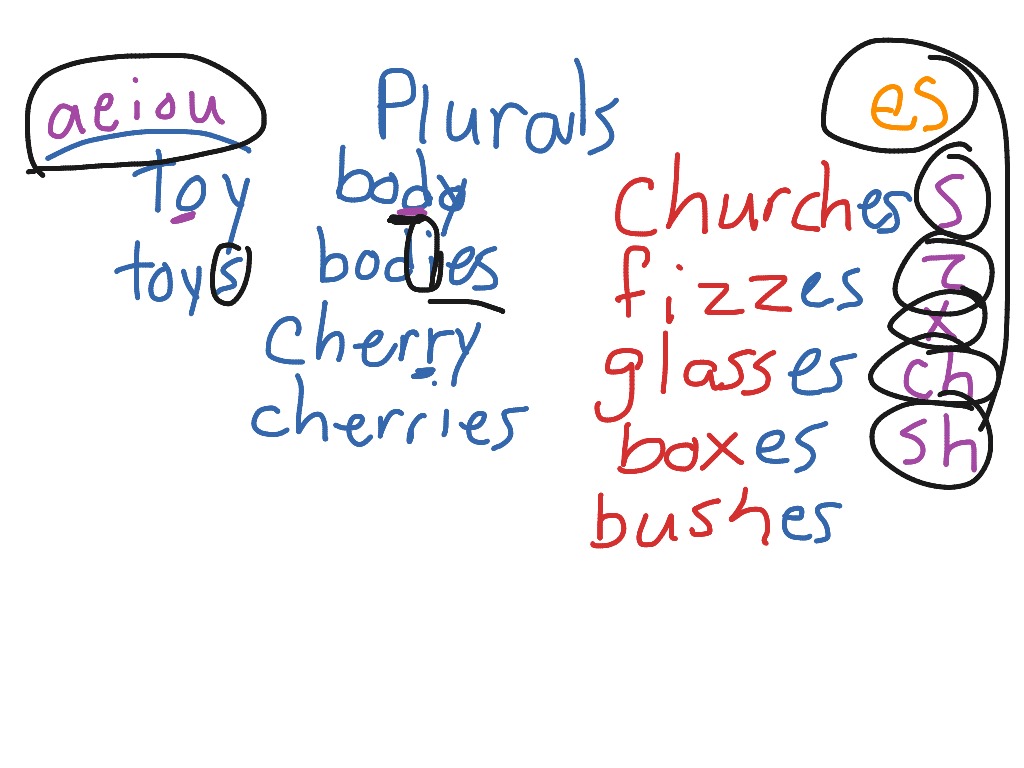 aeiou
Plurals
es
toy
toys
body
bodies
cherry
cherries
churches
fizzes
glasses
boxes
bushes
s
z
x
ch
sh